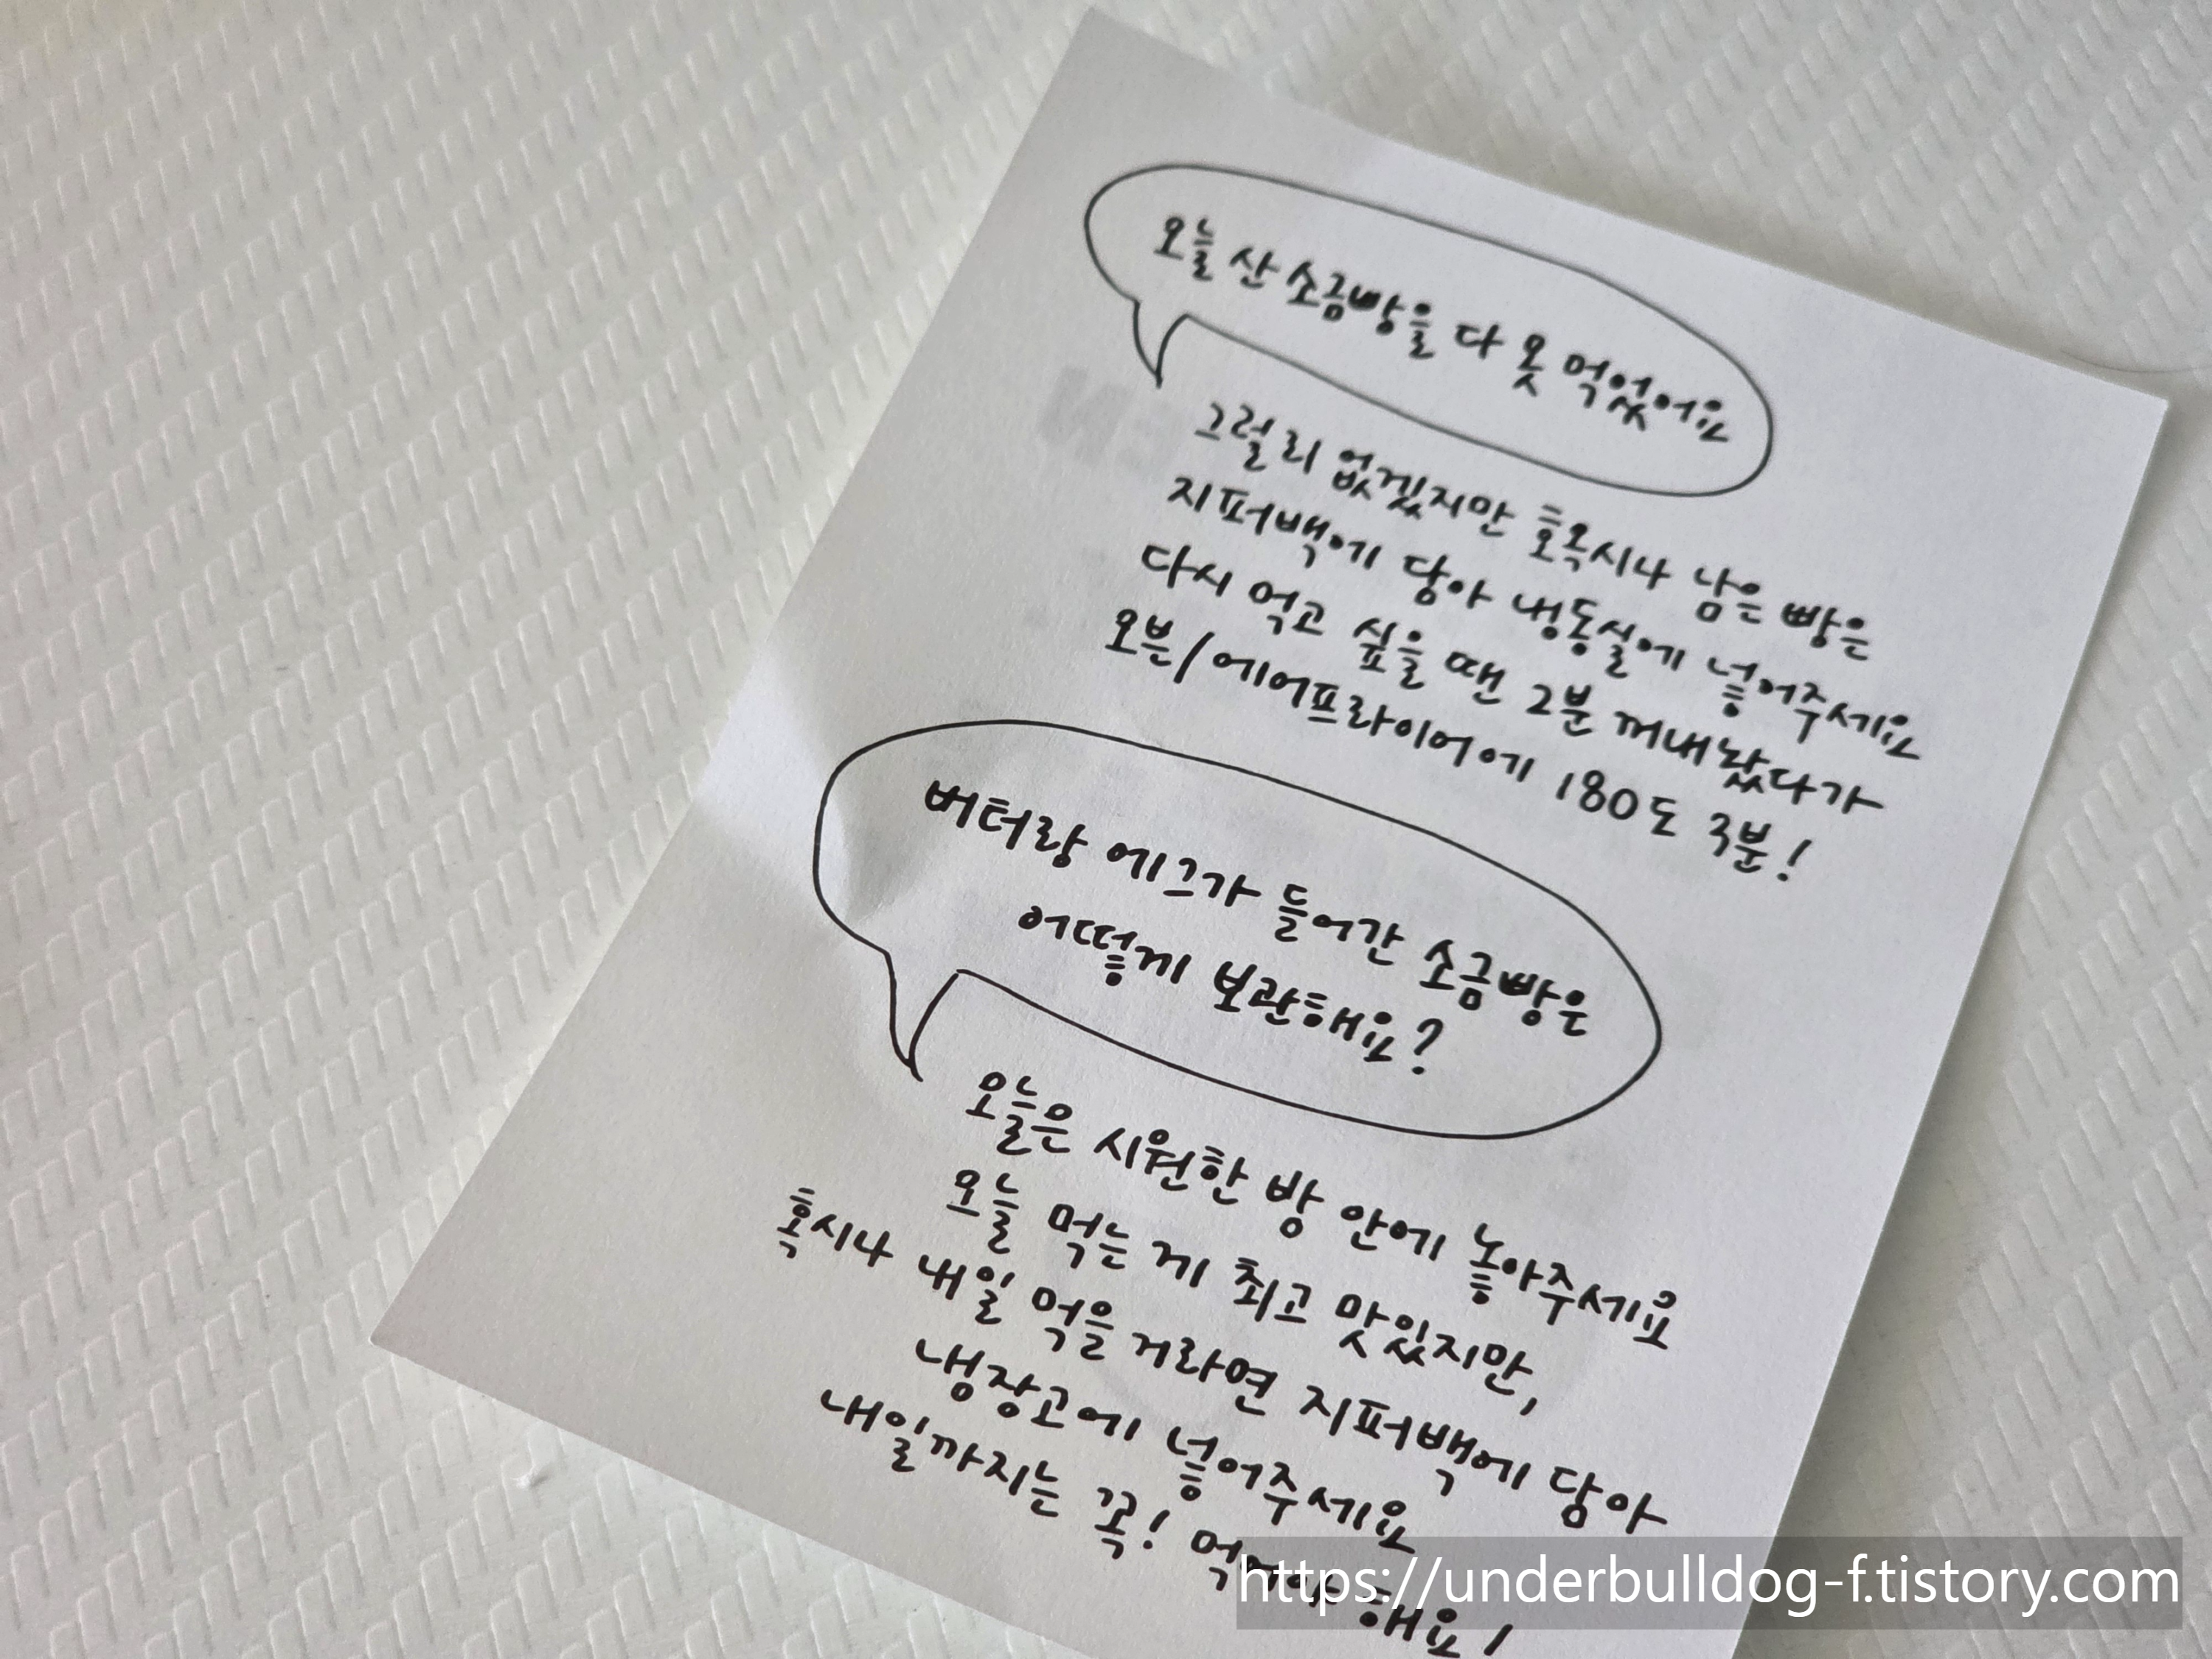 오늘 산 소금빵을 다 못 먹었어요
그럴리 없겠지만 혹시나 남은 빵은
지퍼백에 담아 냉동실에 넣어주세요
다시 먹고 싶을 땐 2분 꺼내놨다가
오븐/에어프라이어에 180도 3분!
버터랑 에그가 들어간 소금빵은
어떻게 보관해요?
오늘은 시원한 방 안에 놓아주세요
오늘 먹는 게 최고 맛있지만,
혹시나 내일 먹을 거라면 지퍼백에 담아
냉장고에 넣어주세요
내일까지는 꼭! 먹어야 해요!
https://underbulldog-f.tistory.com